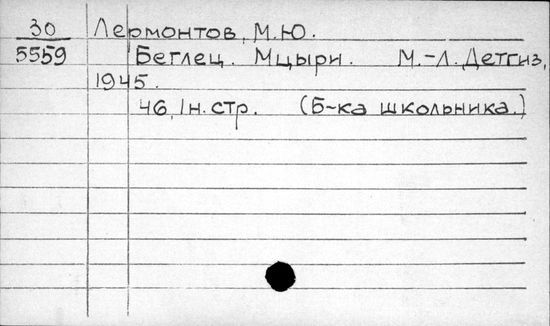 30 Лермонтов, М.Ю.
5559 Беглец. Мцыри. М.-Л. Детгиз,
1945.
46, 1 н. стр. (Б-ка школьника.)